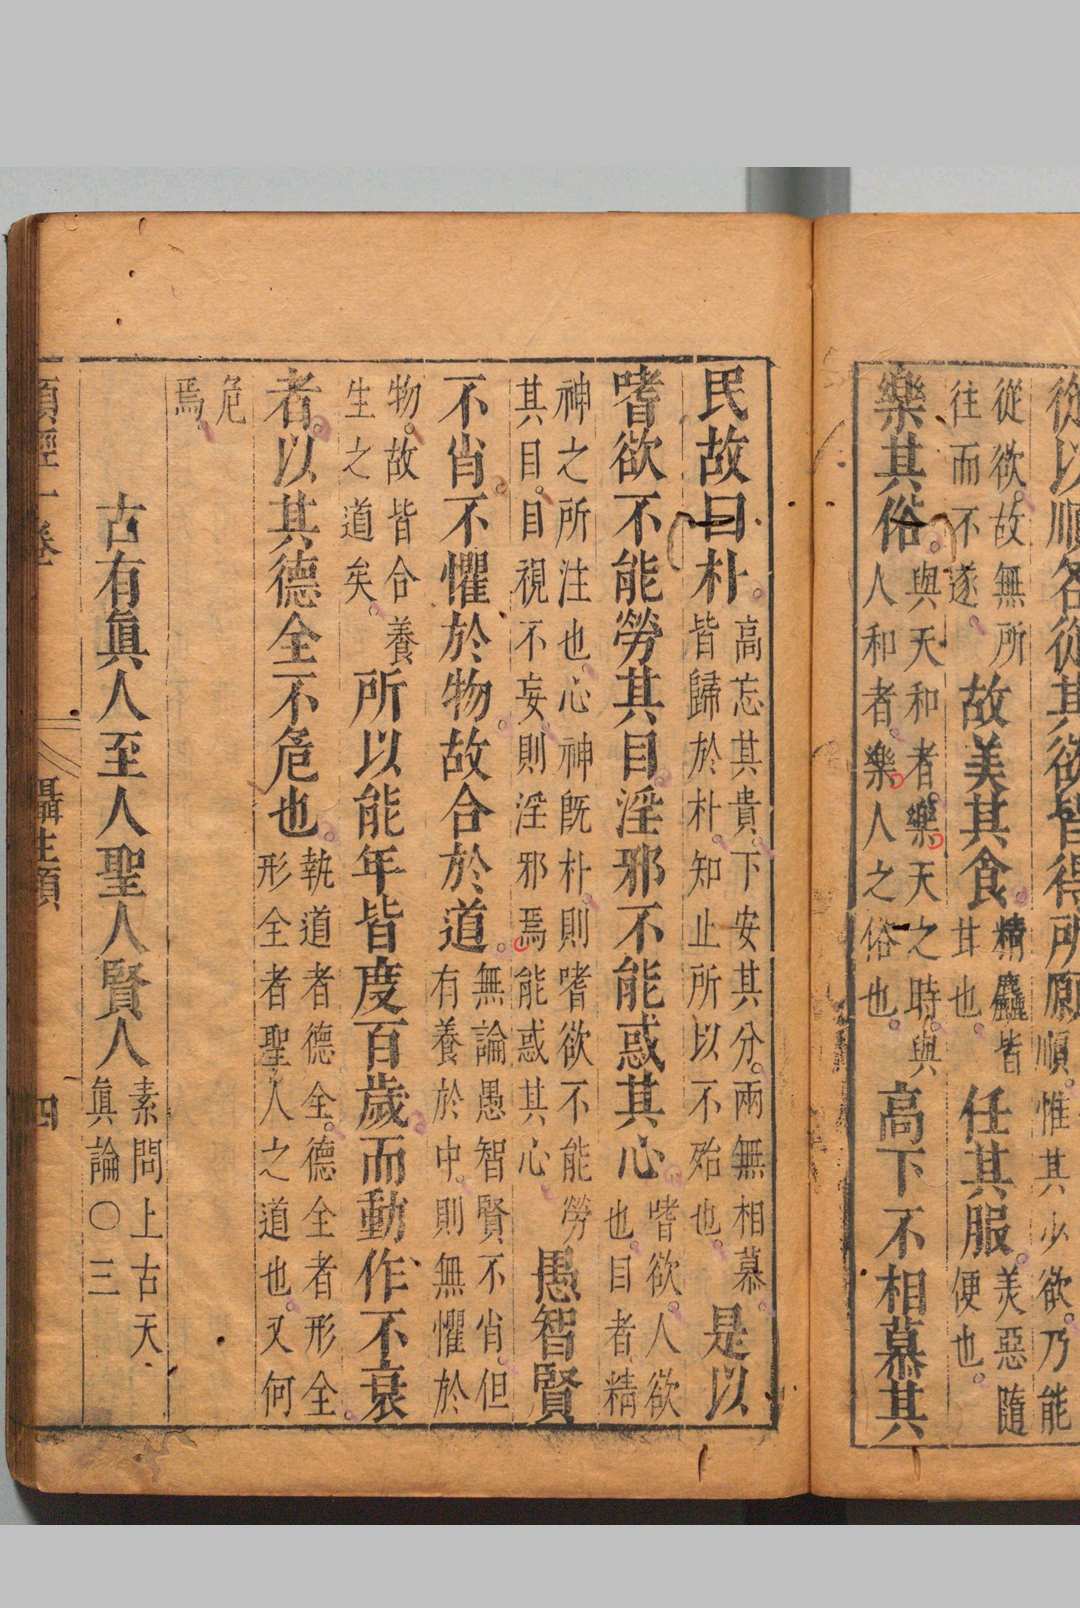 從以順各從其欲皆得所願順惟其少欲乃能
從欲故無所
往而不遂故美其食精麤皆
甘也任其服美惡隨
便也
樂其俗與天和者樂天之時與
人和者樂人之俗也高下不相慕其
民故曰朴高忘其貴下安其分兩無相慕
皆歸於朴知止所以不殆也是以
嗜欲不能勞其目淫邪不能惑其心嗜欲人欲
也目者精
神之所注也心神既朴則嗜欲不能勞
其目目視不妄則淫邪焉能惑其心愚智賢
不肖不懼於物故合於道無論愚智賢不肖但
有養於中則無懼於
物故皆合養
生之道矣所以能年皆度百歲而動作不衰
者以其德全不危也執道者德全德全者形全
形全者聖人之道也又何
危
焉
古有眞人至人聖人賢人素問上古天
眞論○三
類經一卷 攝生類 四